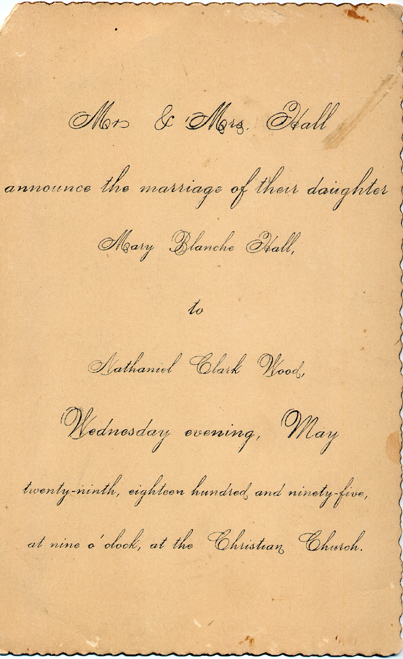 Mr & Mrs. Hall
announce the marriage of their daughter
Mary Blanche Hall,
to
Nathaniel Clark Wood,
Wednesday evening, May
twenty-ninth, eighteen hundred and ninety-five,
at nine o'clock, at the Christian Church.